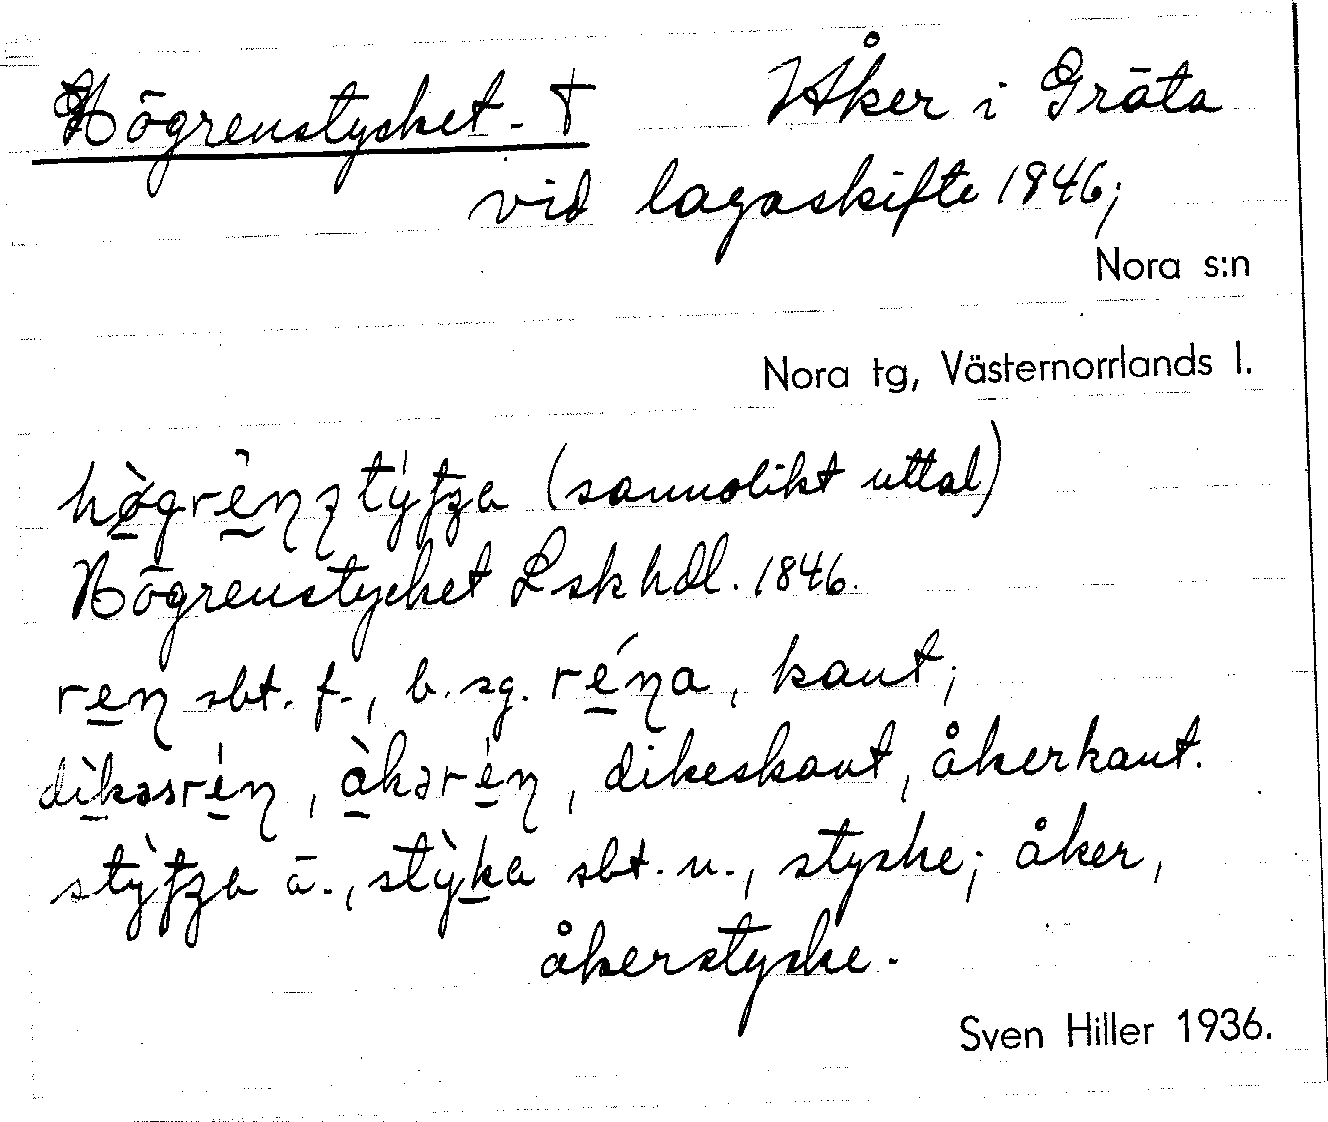 Högrenstycket. † Åker i Gräta
vid lagaskifte 1846;
Nora s:n
Nora tg, Västernorrlands l.
(sannolikt uttal)
Högrenstycket Lskhdl. 1846.
ren sbt. f., b. sg. réna, kant;
dikəsrén, àkərén, dikeskant, åkerkant.
ä., stỳka sbt. n., stycke; åker,
åkerstycke.
Sven Hiller 1936.